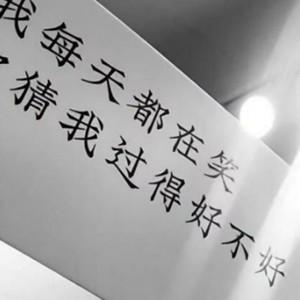 我每天都在笑
猜我过得好不好